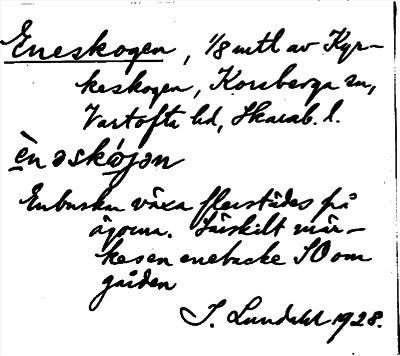 Eneskogen, 1/8 mtl av Kyr-
keskogen, Korsberga sn,
Vartofta hd, Skarab. l.
èn əskójən
Enbuskar växa flerstädes på
ägorna. Särskilt mär-
kes en enebacke SO om
gården
I. Lundahl 1928.